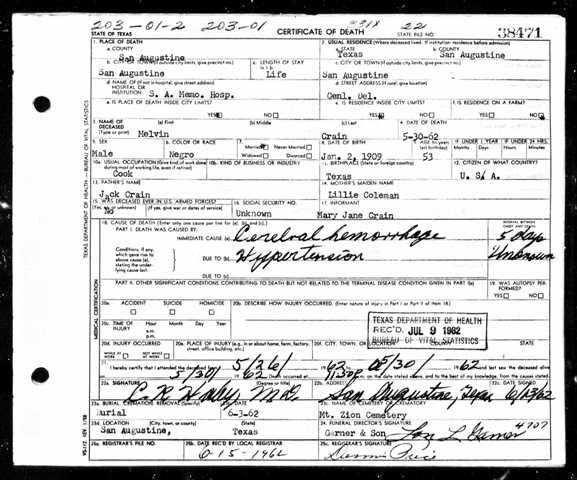 203-01-2 203-01 318 22
STATE OF TEXAS CERTIFICATE OF DEATH STATE FILE NO. 38471
1. PLACE OF DEATH 2. USUAL RESIDENCE (Where deceased lived. If institution: residence before admission)
a. COUNTY San Augustine a. STATE Texas b. COUNTY San Augustine
b. CITY OR TOWN (If outside city limits, give precinct no.) c. LENGTH OF STAY c. CITY OR TOWN (If outside city limits, give precinct no.)
San Augustine Life San Augustine
d. NAME OF (If not in hospital, give street address) d. STREET ADDRESS (If rural, give location)
HOSPITAL OR
INSTITUTION S. A. Memo. Hosp. Genl. Del.
e. IS PLACE OF DEATH INSIDE CITY LIMITS? e. IS RESIDENCE INSIDE CITY LIMITS? f. IS RESIDENCE ON A FARM?
YES NO YES NO YES NO
3. NAME OF DECEASED (Type or print) (a) First (b) Middle (c) Last 4. DATE OF DEATH
Melvin Crain 5-30-62
5. SEX 6. COLOR OR RACE 7. Married Never Married 8. DATE OF BIRTH 9. AGE (In years last birthday) IF UNDER 1 YEAR IF UNDER 24 HRS.
Widowed Divorced Months Days Hours Min.
Male Negro Jan. 2, 1909 53
10a. USUAL OCCUPATION (Give kind of work done during most of working life, even if retired) 10b. KIND OF BUSINESS OR INDUSTRY 11. BIRTHPLACE (State or foreign country) 12. CITIZEN OF WHAT COUNTRY?
Cook Texas U. S. A.
13. FATHER'S NAME 14. MOTHER'S MAIDEN NAME
Jack Crain Lillie Coleman
15. WAS DECEASED EVER IN U.S. ARMED FORCES? 16. SOCIAL SECURITY NO. 17. INFORMANT
(Yes, no, or unknown) (If yes, give war or dates of service)
No Unknown Mary Jane Crain
18. CAUSE OF DEATH (Enter only one cause per line for (a), (b), and (c).) INTERVAL BETWEEN ONSET AND DEATH
PART I. DEATH WAS CAUSED BY:
IMMEDIATE CAUSE (a) Cerebral hemorrhage 5 days
Conditions, if any, which gave rise to above cause (a), stating the underlying cause last. DUE TO (b) Hypertension Unknown
DUE TO (c)
PART II. OTHER SIGNIFICANT CONDITIONS CONTRIBUTING TO DEATH BUT NOT RELATED TO THE TERMINAL DISEASE CONDITION GIVEN IN PART I(a) 19. WAS AUTOPSY PERFORMED?
YES NO
20a. ACCIDENT SUICIDE HOMICIDE 20b. DESCRIBE HOW INJURY OCCURRED. (Enter nature of injury in Part I or Part II of item 18.)
20c. TIME OF INJURY Hour Month Day Year
a.m.
p.m.
TEXAS DEPARTMENT OF HEALTH
REC'D. JUL 9 1962
BUREAU OF VITAL STATISTICS
20d. INJURY OCCURRED 20e. PLACE OF INJURY (e.g., in or about home, farm, factory, street, office building, etc.) 20f. CITY, TOWN, OR LOCATION COUNTY STATE
WHILE AT WORK NOT WHILE AT WORK
21. I hereby certify that I attended the deceased from 5/26/ 1962 to 5/30/ 1962 and last saw
5/30/ 1962 Death occurred at 11:30P.m. on the date stated above, and to the best of my knowledge, from the causes stated.
22a. SIGNATURE (Degree or title) 22b. ADDRESS 22c. DATE SIGNED
M.D. San Augustine, Texas
23a. BURIAL, CREMATION, REMOVAL (Specify) 23b. DATE 23c. NAME OF CEMETERY OR CREMATORY
Burial 6-3-62 Mt. Zion Cemetery
23d. LOCATION (City, town, or county) (State) 24. FUNERAL DIRECTOR'S SIGNATURE 4707
San Augustine, Texas Garner & Son
25a. REGISTRAR'S FILE NO. 25b. DATE REC'D BY LOCAL REGISTRAR 25c. REGISTRAR'S SIGNATURE
6-15-1962
TEXAS DEPARTMENT OF HEALTH - BUREAU OF VITAL STATISTICS
MEDICAL CERTIFICATION